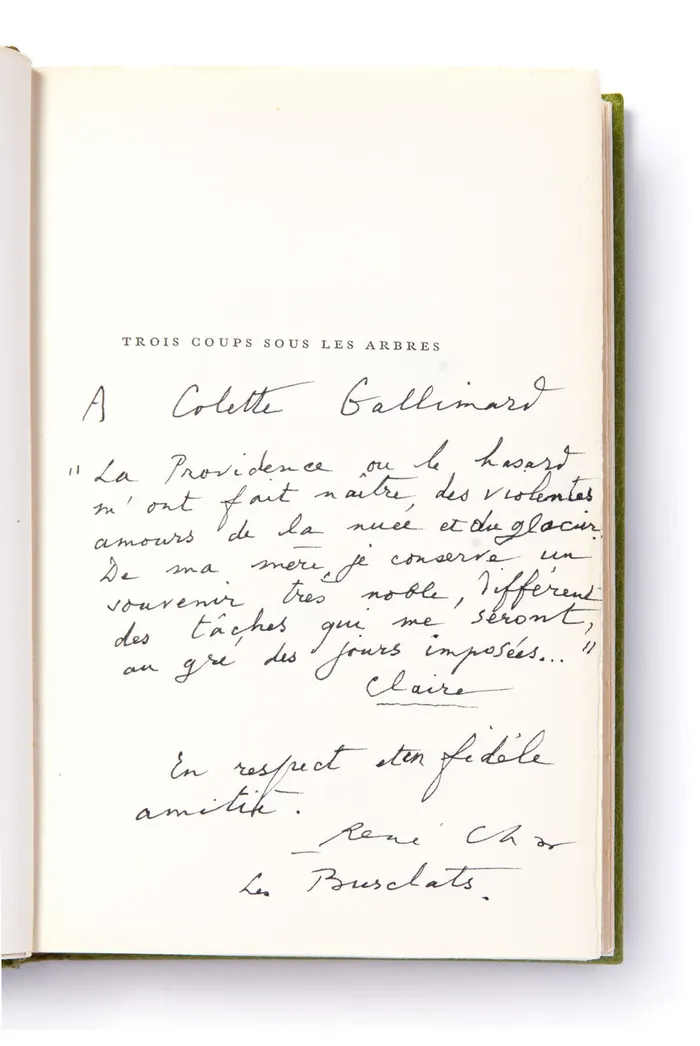 TROIS COUPS SOUS LES ARBRES
A Colette Gallimard
"La Providence ou le hasard
m'ont fait naître, des violentes
amours de la nuée et du glacier.
De ma mère, je conserve un
souvenir très noble, différent
des tâches qui me seront,
au gré des jours imposées... "
Claire
En respect et en fidèle
amitié.
René Char
Les Busclats.